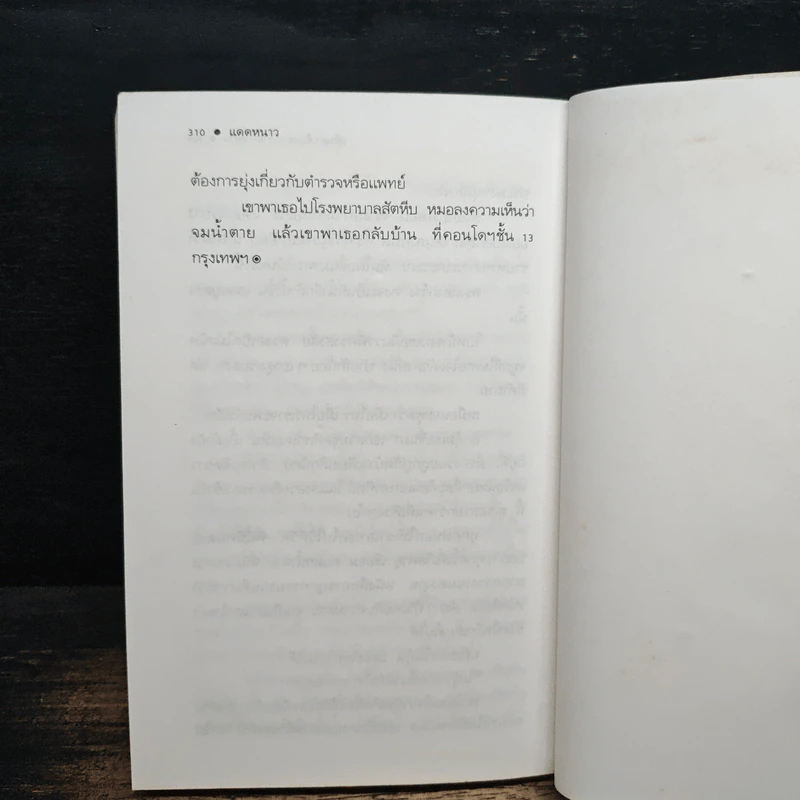 310 ● แดดหนาว
ต้องการยุ่งเกี่ยวกับตำรวจหรือแพทย์
เขาพาเธอไปโรงพยาบาลสัตหีบ หมอลงความเห็นว่า
จมน้ำตาย แล้วเขาพาเธอกลับบ้าน ที่คอนโดฯชั้น 13
กรุงเทพฯ ◉